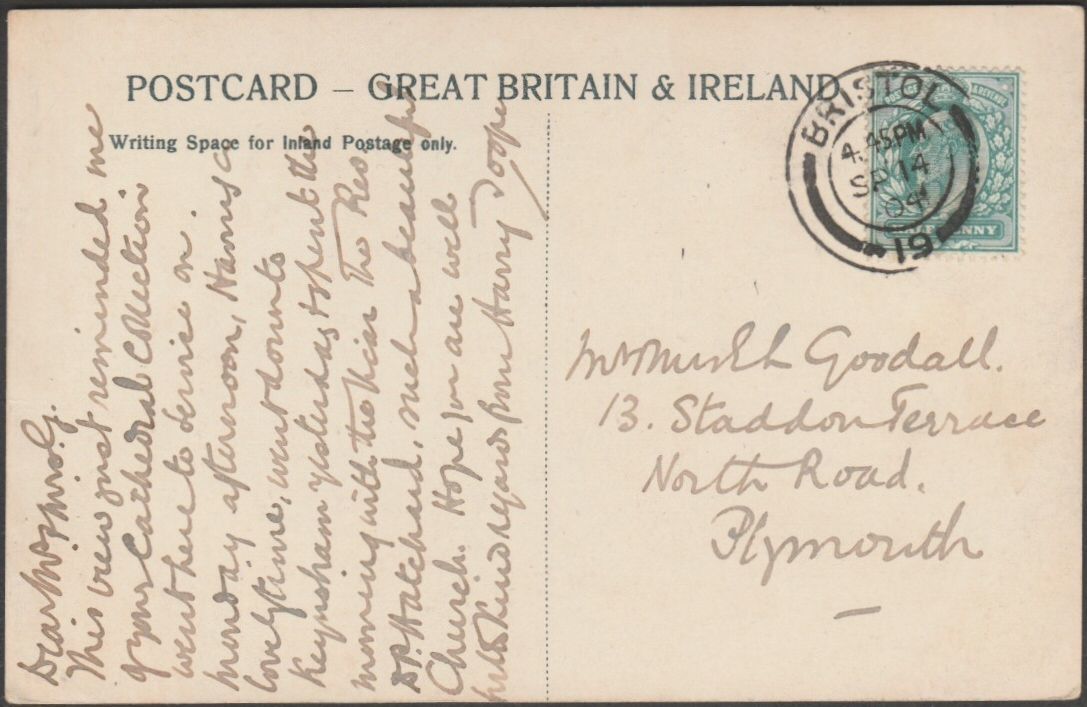 POSTCARD – GREAT BRITAIN & IRELAND
Writing Space for Inland Postage only.
BRISTOL
4.45PM
SP 14
04
19
HALFPENNY
Mr & Mrs E L Goodall.
13. Staddon Terrace
North Road.
Plymouth
Dear Mr & Mrs. G.
This view just reminded me
of your Cathedral Collection
went here to Service on
Monday afternoon, Having a
lovely time, went down to
Keynsham yesterday & spent the
morning with the Vicar The Rev
Hatchard, such a beautiful
Church. Hope you are well
with Kind regards from Harry